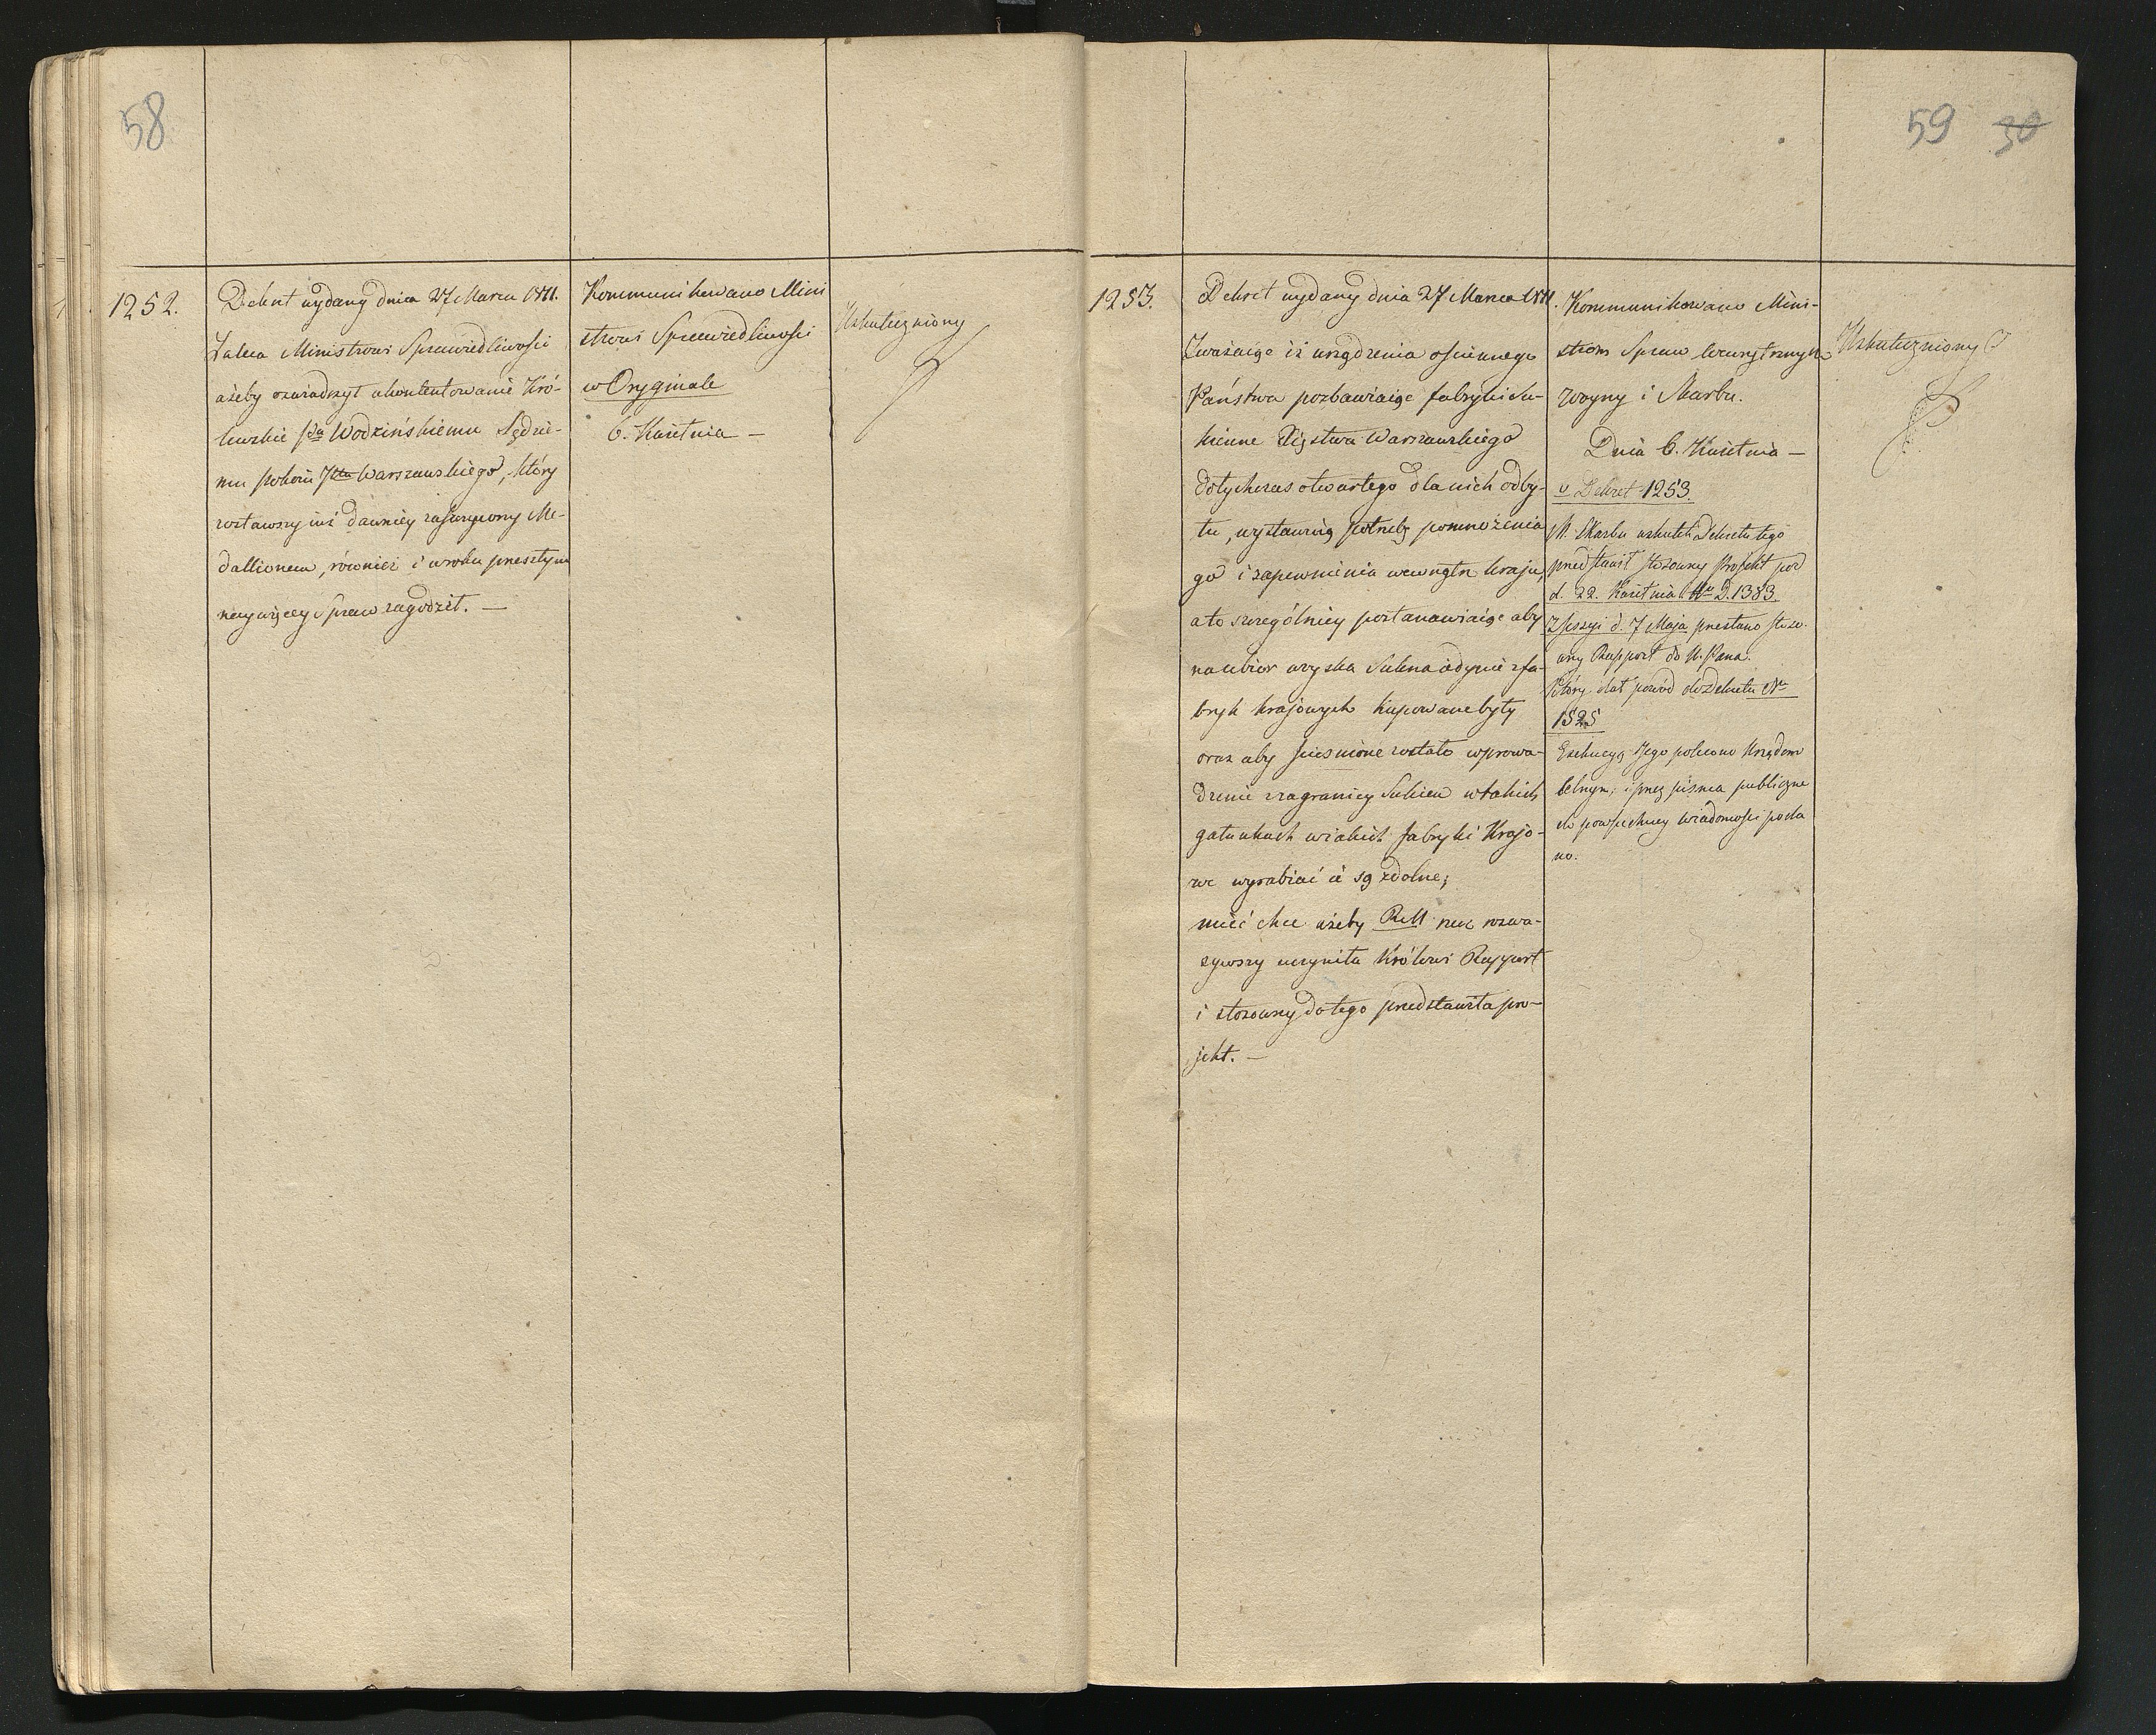 58
1252.
Dekret wydany dnia 27 Marca 1811.
Zaleca Ministrowi Sprawiedliwości
ażeby oświadczył ukontentowanie Kró-
lewskie Wodzińskiemu Sędzie-
mu pokoiu Warszawskiego, który
zostawszy iuż dawniey zaszczycony Me-
dallionem, również i w roku przeszłym
naywięcey Spraw zagodził. —
Kommunikowano Mini
strowi Sprawiedliwości
w Oryginale
6. Kwietnia —
Uskuteczniony
59 30
1253.
Dekret wydany dnia 27 Marca 1811.
Zważaiąc iż urządzenia ościennego
Państwa pozbawiaiąc fabryki Su-
kienne Xięstwa Warszawskiego
dotychczas otwartego dla nich odby-
tu, wystawuią potrzebę pomnożenia
go i zapewnienia wewnątrz kraju,
a to szczególniey postanawiaiąc aby
na ubior woyska Sukna iedynie z fa-
bryk krajowych kupowane były
oraz aby ścieśnione zostało wprowa-
dzenie z zagranicy Sukien w takich
gatunkach w iakich fabryki Krajo-
we wyrabiać ie są zdolne;
mieć chce ażeby RM rzecz rozwa-
żywszy uczyniła Królowi Rapport
i stosowny do tego przedstawiła pro-
jekt. —
Kommunikowano Mini-
strom Spraw Wewnętrznych
woyny i Skarbu.
Dnia 6. Kwietnia —
v Dekret 1253.
M. Skarbu wskutek Dekretu tego
przedstawił stosowny Projekt pod
d. 22. Kwietnia Nro D. 1383.
Z Sessyi d. 7 Maja przesłano stoso-
wny Rapport do N. Pana.
Który dał powód do Dekretu Nro
1525
Exekucyą Jego polecono Urzędom
Celnym, i przez pisma publiczne
do powszechney wiadomości poda
no.
Uskuteczniony